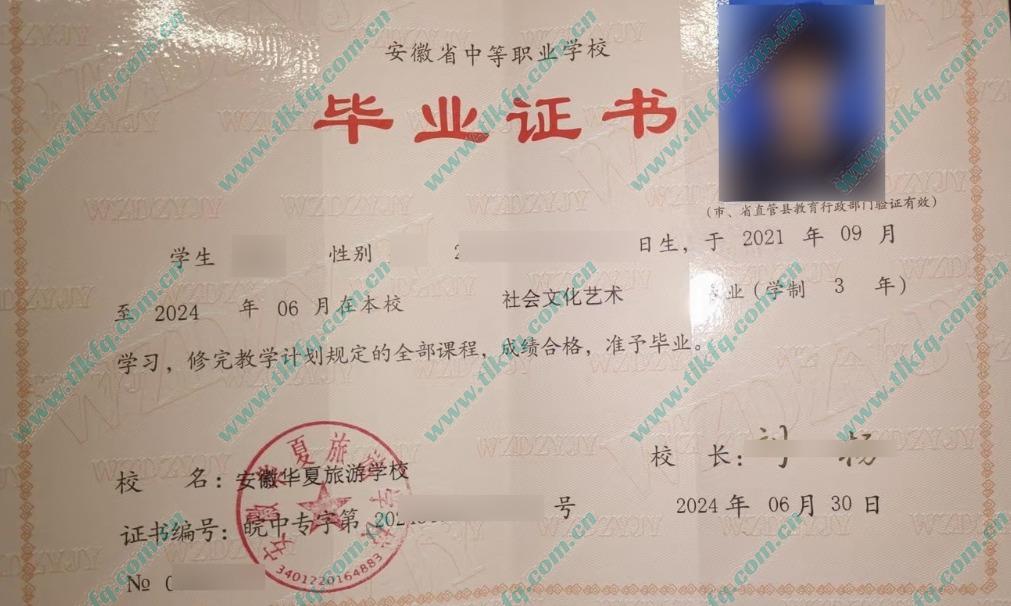 安徽省中等职业学校
毕业证书
(市、省直管县教育行政部门验证有效)
学生 性别 2 日生，于 2021 年 09 月
至 2024 年 06 月在本校 社会文化艺术 业(学制 3 年)
学习，修完教学计划规定的全部课程，成绩合格，准予毕业。
校 名：安徽华夏旅游学校
校 长：
证书编号：皖中专字第 号
2024 年 06 月 30 日
№ 0
安徽华夏旅游学校
3401220164883
WZDZYJY
www.tlkfq.com.cn